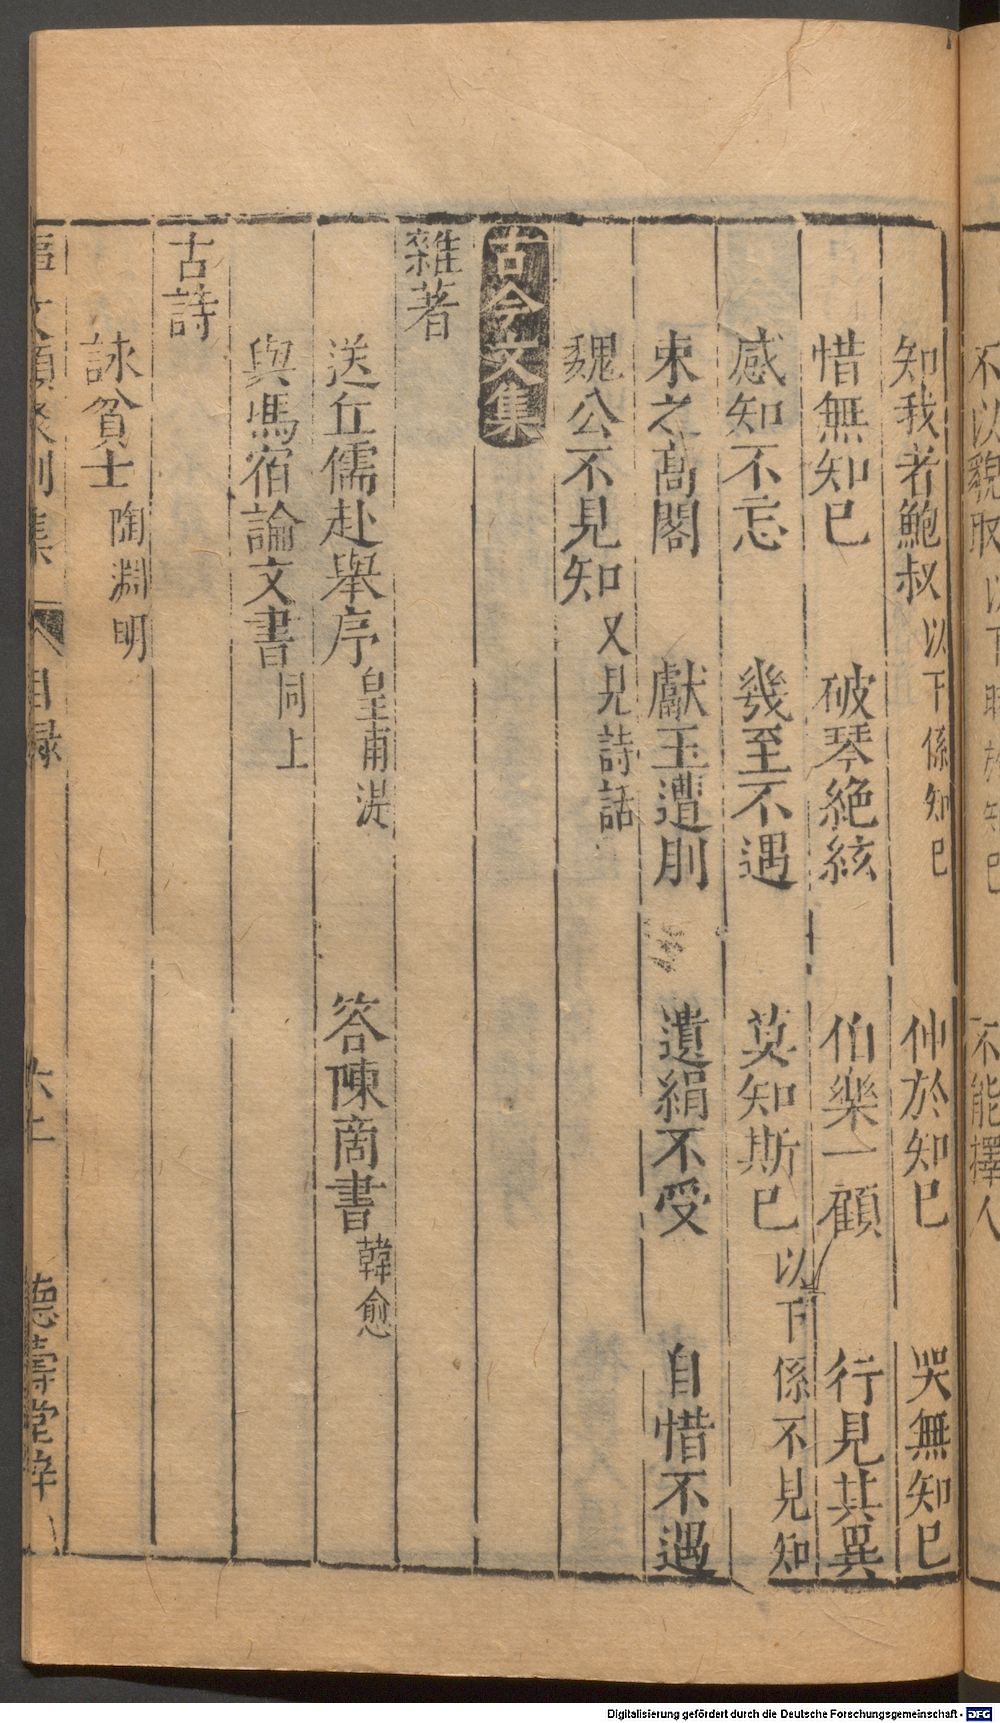 不以貌取 以下時於知已 不能擇人
知我者鮑叔 以下係知已 仲於知已 哭無知已
惜無知已 破琴絶絃 伯樂一顧 行見其異
感知不忘 幾至不遇 莫知斯已 以下係不見知
束之高閣 獻玉遭刖 遺絹不受 自惜不遇
魏公不見知 又見詩話
古今文集
雜著
送丘儒赴舉序 皇甫湜 答陳商書 韓愈
與馮宿論文書 同上
古詩
詠貧士 陶淵明
文類聚別集 目録 六十 德壽堂梓
Digitalisierung gefördert durch die Deutsche Forschungsgemeinschaft - DFG